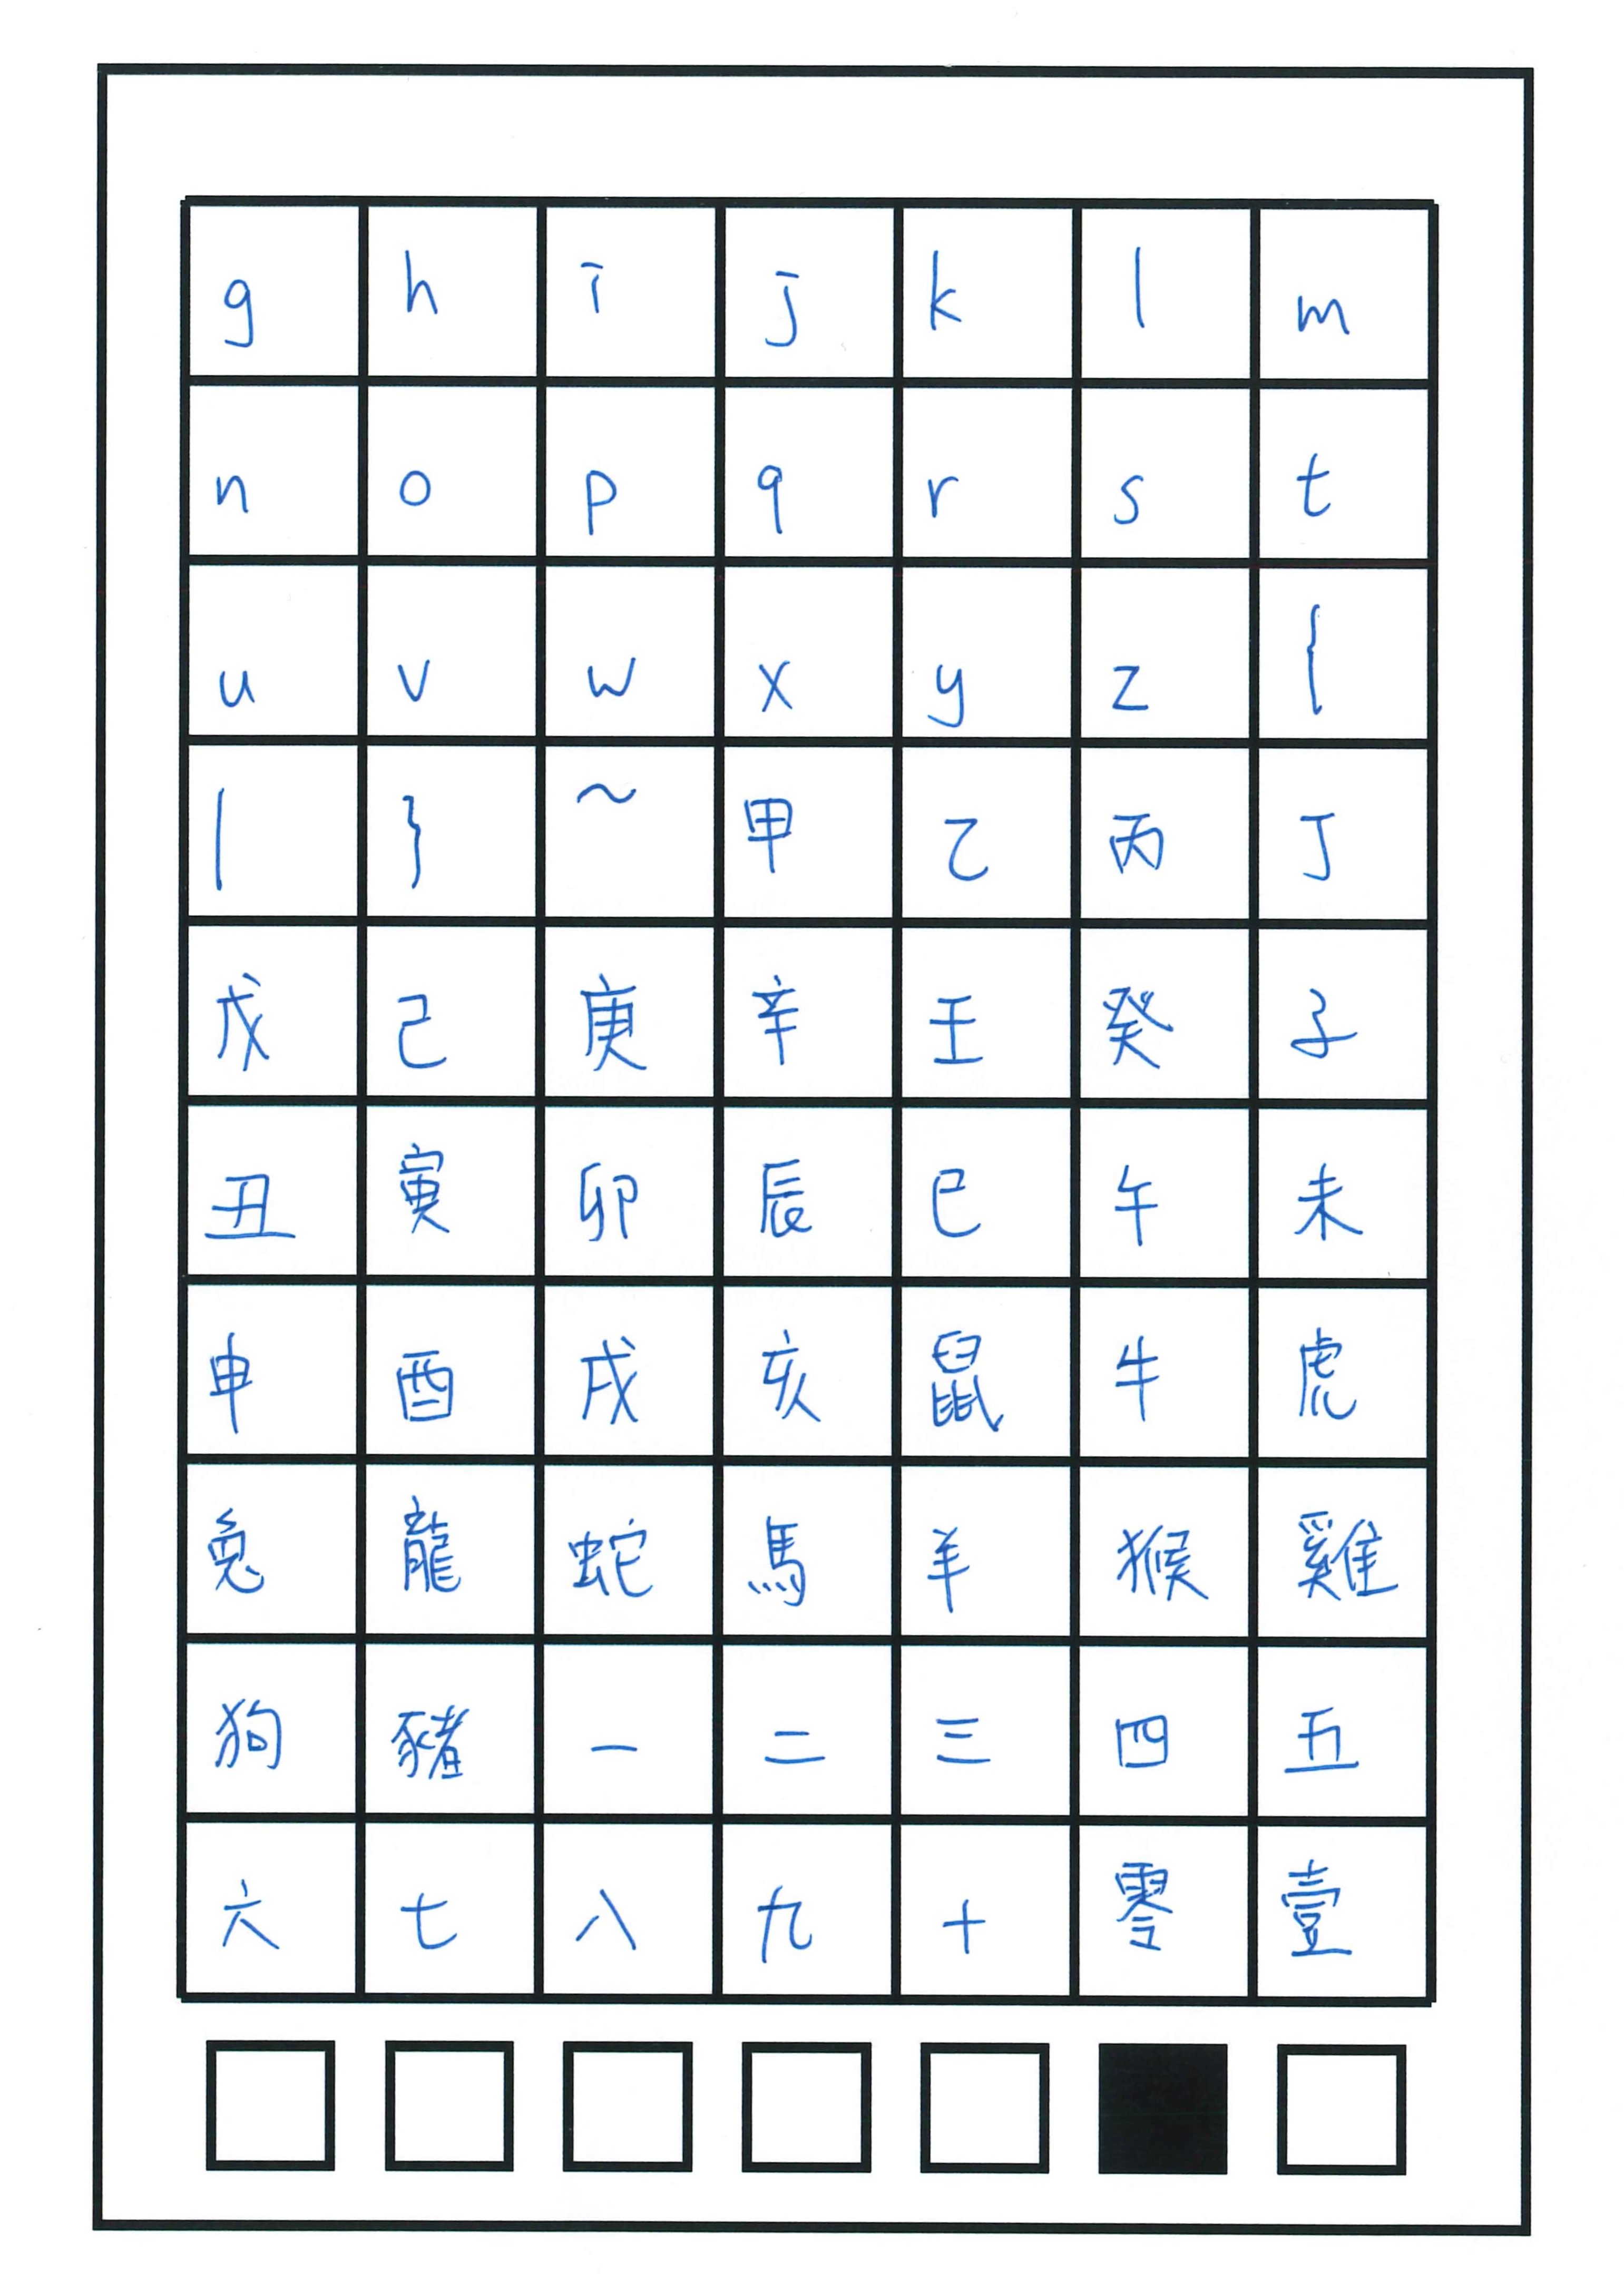 g h i j k l m
n o p q r s t
u v w x y z {
| } ~ 甲 乙 丙 丁
戊 己 庚 辛 壬 癸 子
丑 寅 卯 辰 巳 午 未
申 酉 戌 亥 鼠 牛 虎
兔 龍 蛇 馬 羊 猴 雞
狗 豬 一 二 三 四 五
六 七 八 九 十 零 壹